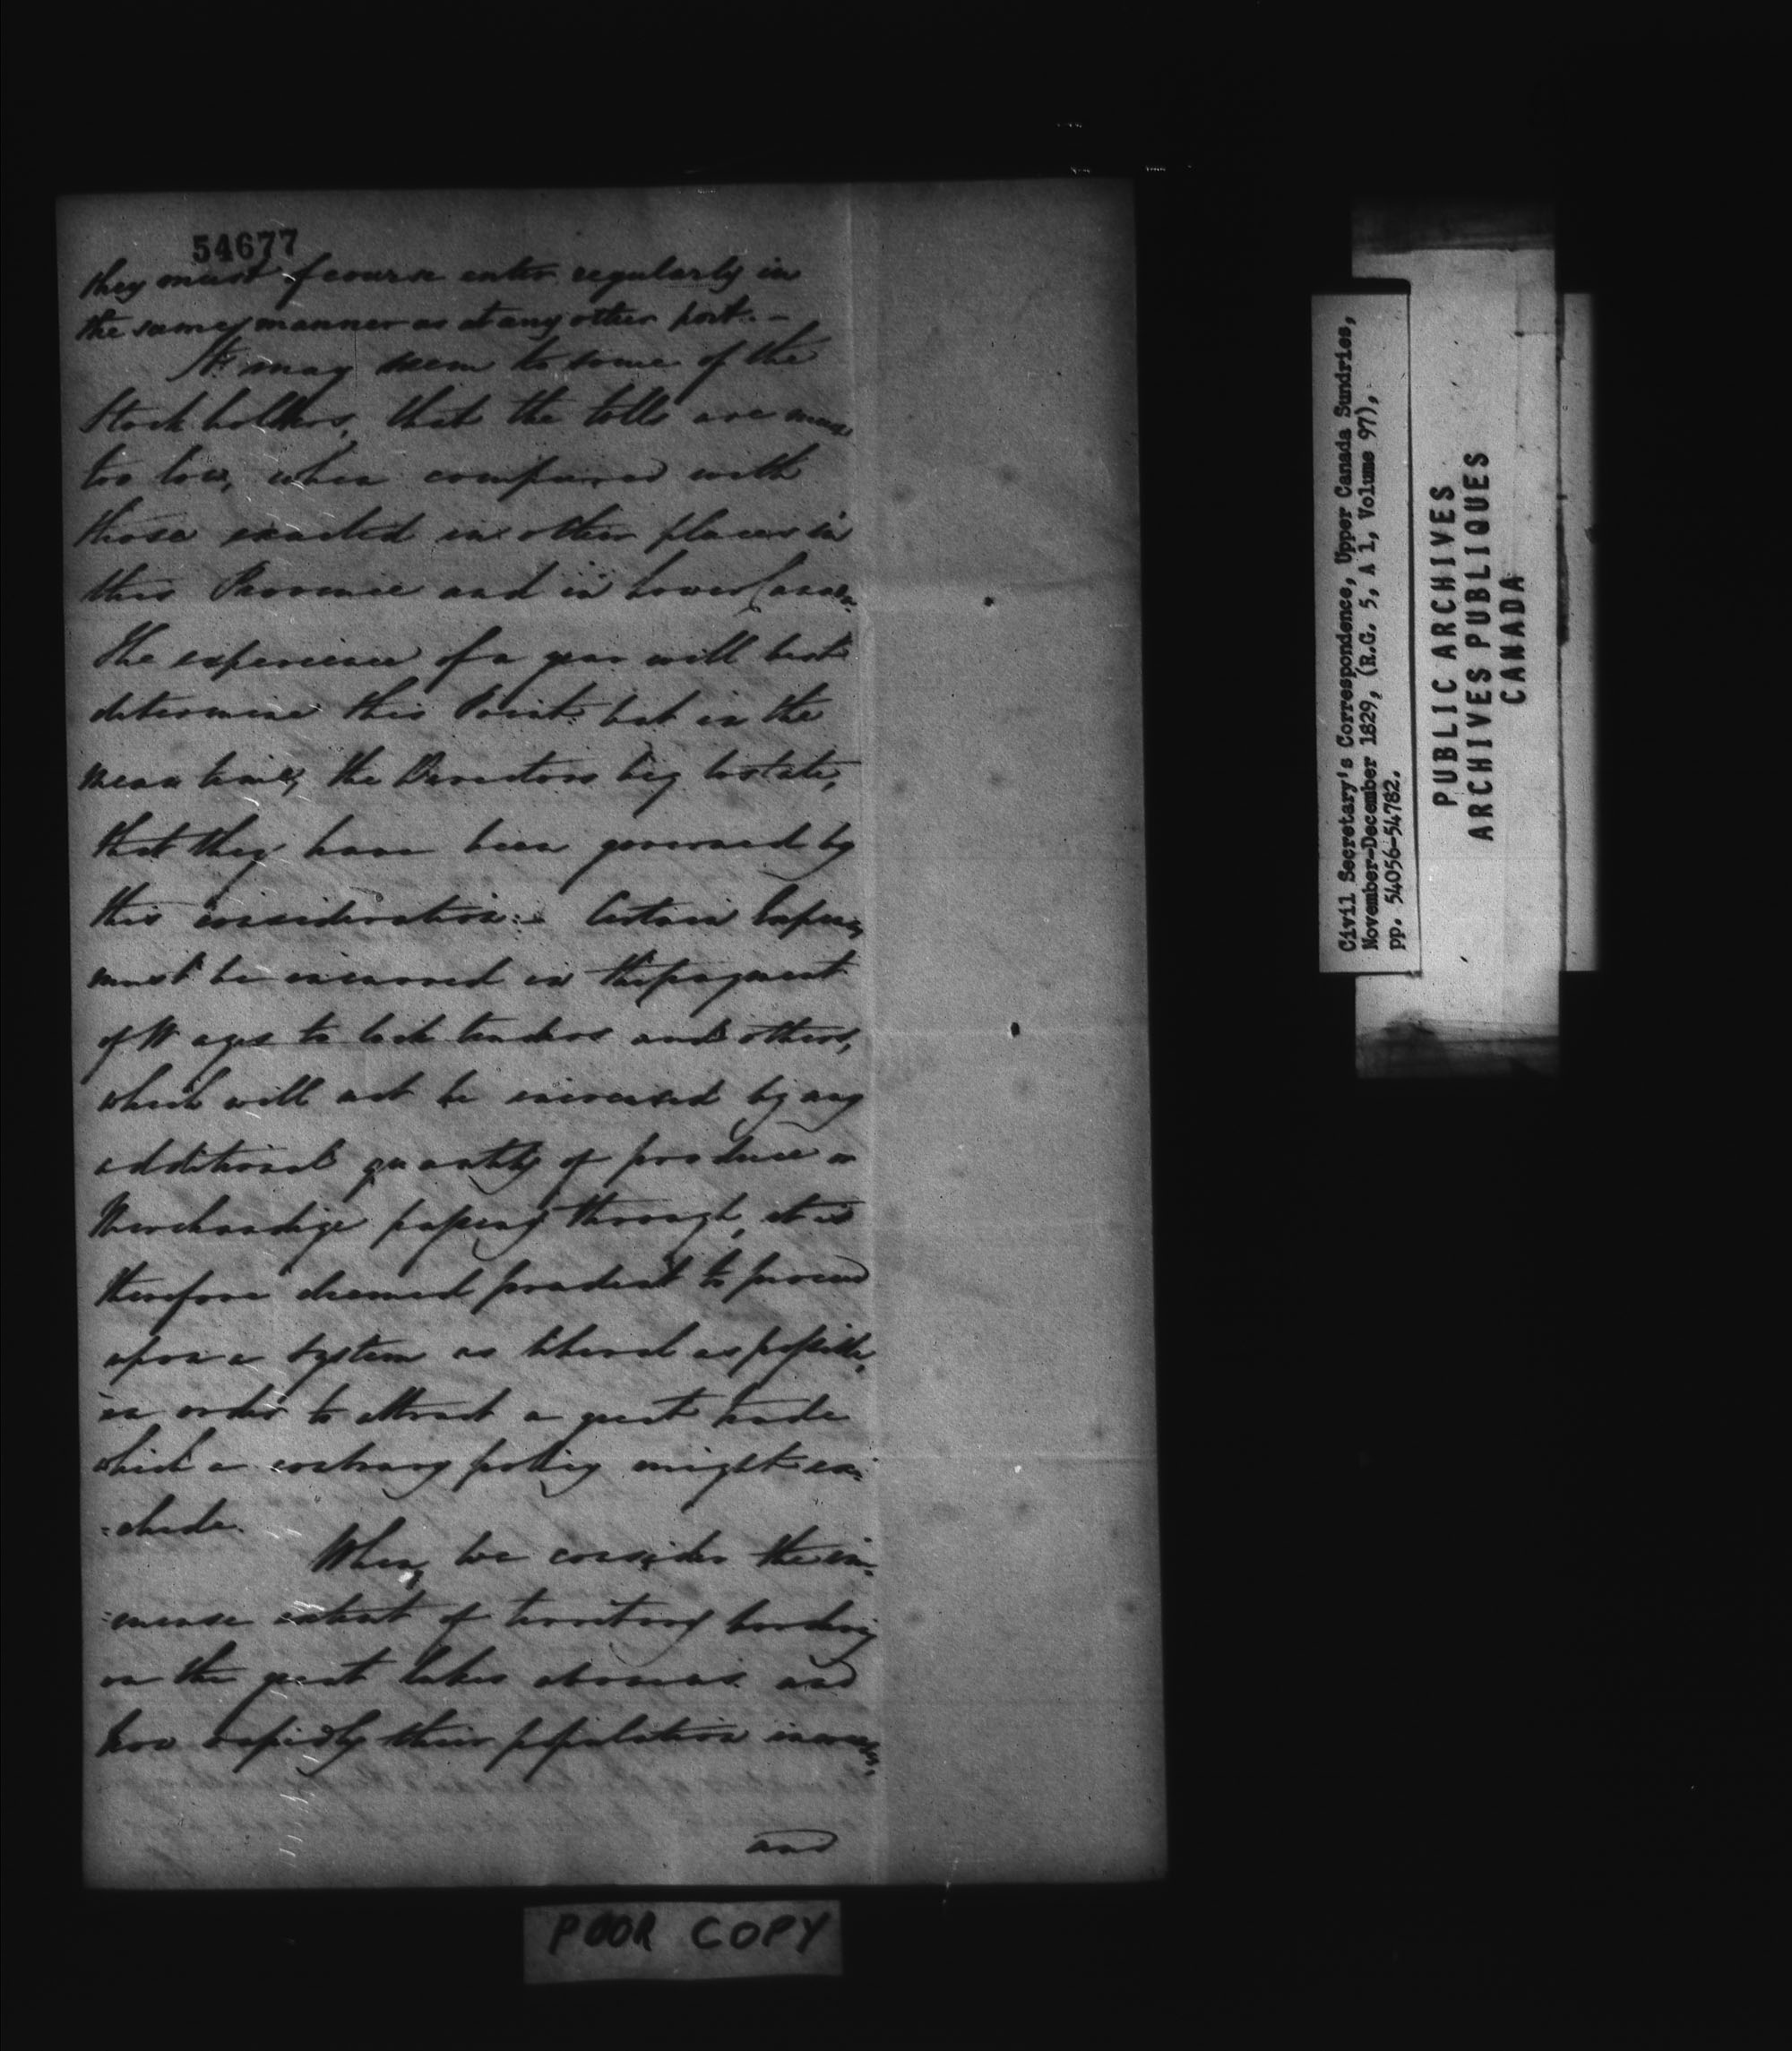 54677
they must of course enter regularly in
the same manner as at any other port. -
It may seem to some of the
Stock holders, that the tolls are
too low, when compared with
those exacted in other places in
this Province and in Lower
The experience of a year will best
determine this Point: but in the
mean time, the Directors beg to state,
that they have been governed by
this consideration:- Certain
must be incurred in the payment
of Wages to lock tenders and others,
which will not be increased by any
additional quantity of produce or
Merchandize passing through, it is
therefore deemed prudent to proceed
upon a system as liberal as possible,
in order to attract a great trade
which a contrary policy might ex=
=clude.
When, we consider the im=
=mense extent of territory bordering
on the great lakes above us and
how rapidly their population
and
POOR COPY
Civil Secretary's Correspondence, Upper Canada Sundries,
November-December 1829, (R.G. 5, A 1, Volume 97),
pp. 54056-54782.
PUBLIC ARCHIVES
ARCHIVES PUBLIQUES
CANADA